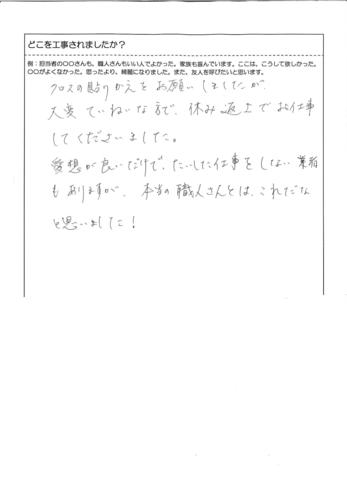 どこを工事されましたか？
例：担当者の〇〇さんも、職人さんもいい人でよかった。家族も喜んでいます。ここは、こうして欲しかった。
〇〇がよくなかった。思ったより、綺麗になりました。また、友人を呼びたいと思います。
クロスの貼りかえをお願いしましたが、
大変ていねいな方で、休み返上でお仕事
してくださいました。
愛想が良いだけで、たいした仕事をしない業者
もありますが、本当の職人さんとは、これだな
と思いました！